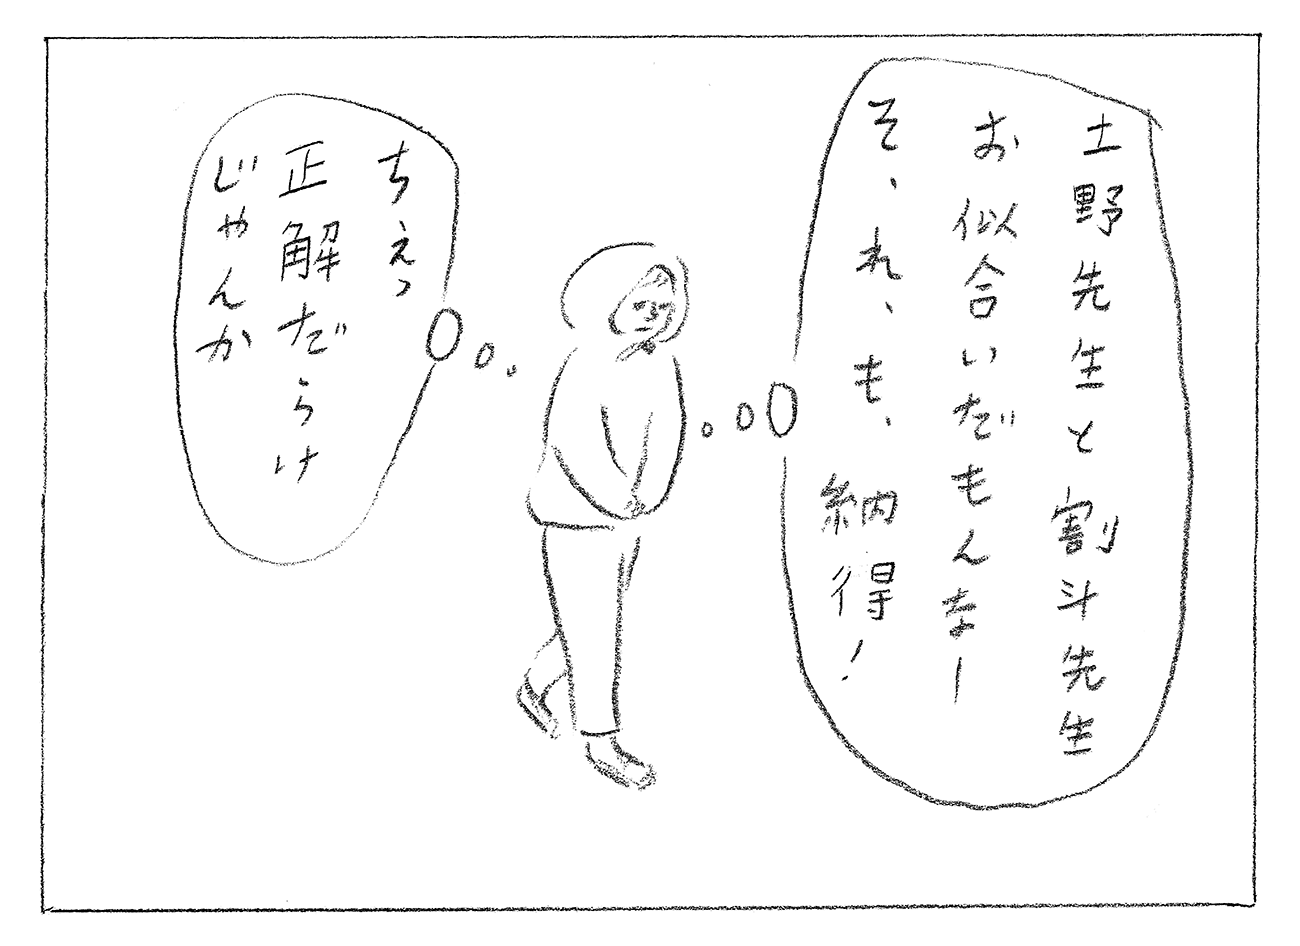 土野先生と割斗先生
お似合いだもんなー
そ、れ、も、納得！
ちぇっ
正解だらけ
じゃんか